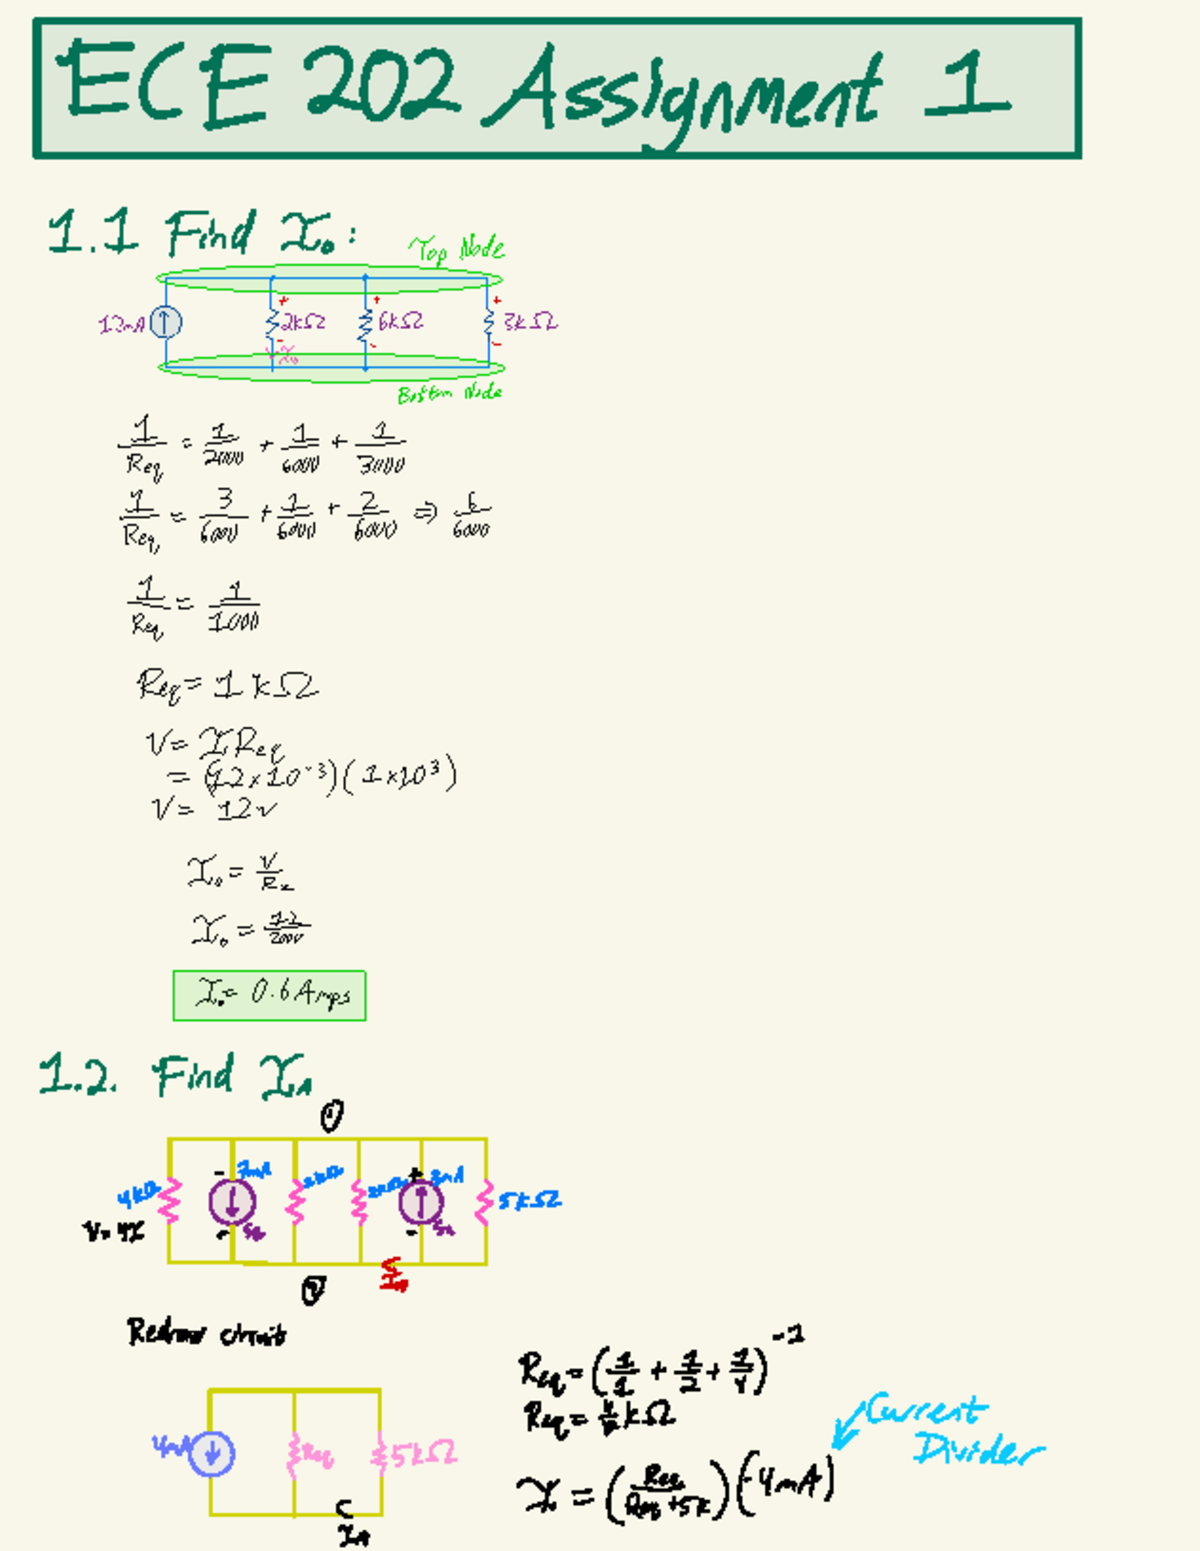 ECE 202 Assignment 1
1.1 Find I₀:
Top Node
12mA
2kΩ
6kΩ
3kΩ
I₀
Bottom Node
1/Req = 1/2000 + 1/6000 + 1/3000
1/Req = 3/6000 + 1/6000 + 2/6000 ⇒ 6/6000
1/Req = 1/1000
Req = 1kΩ
V = I Req
= (12×10⁻³)(1×10³)
V = 12v
I₀ = V/R₂
I₀ = 12/2000
I₀ = 0.6 Amps
1.2. Find I_A
1
4kΩ
7mA
2kΩ
3mA
5kΩ
V = 4I
2
Redraw circuit
Req = (1/1 + 1/2 + 1/4)⁻¹
Req = kΩ
Current
Divider
4mA
Req
5kΩ
I = (Req/(Req+5k))(-4mA)
I_A